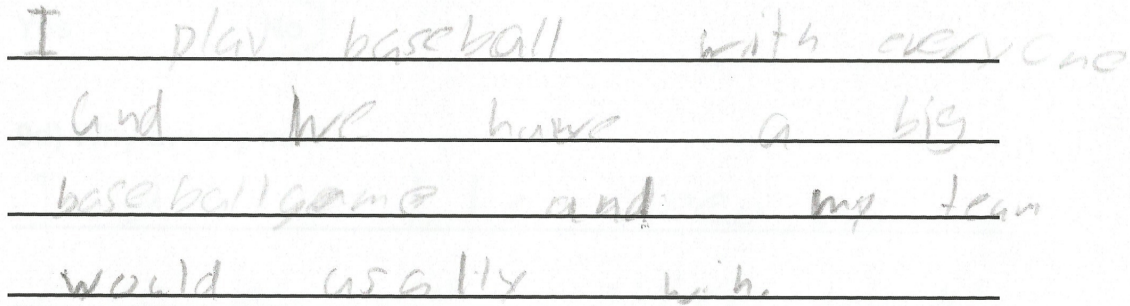 I play baseball with everyone
and we have a big
baseballgame and my team
would usally win.